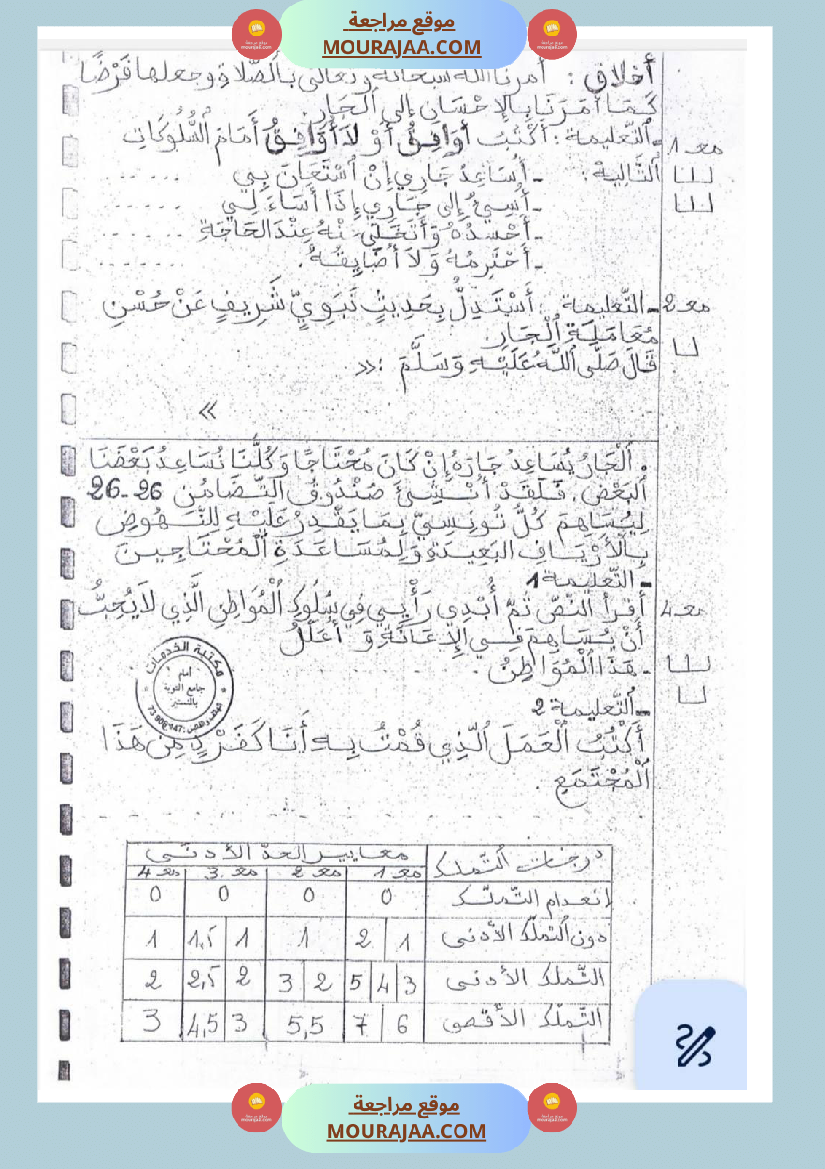 موقع مراجعة
MOURAJAA.COM
أخلاق : أمرنا الله سبحانه وتعالى بالصّلاة وجعلها فرْضًا
كَمَا أمَرَنَا بِالإحْسَانِ إلى الجَارِ
مع1 - التّعليمة : أكْتُبُ أوَافِقُ أوْ لاَ أوَافِقُ أمَامَ السُّلُوكَاتِ
التَّالِيَةِ : - أُسَاعِدُ جَارِي إنْ اسْتَعَانَ بِي ......
- أُسِيءُ إلى جَارِي إذَا أسَاءَ لِي ......
- أحْسُدُهُ وَأتَخَلَّى عنْهُ عِنْدَ الحَاجَةِ ......
- أحْتَرِمُهُ وَلاَ أُضَايِقُهُ. ......
مع2 - التّعليمة : أسْتَدِلُّ بِحَدِيثٍ نَبَوِيٍّ شَرِيفٍ عَنْ حُسْنِ
مُعَامَلَةِ الْجَارِ
قَالَ صَلَّى اللَّهُ عَلَيْهِ وَسَلَّمَ : «
»
. الْجَارُ يُسَاعِدُ جَارَهُ إِنْ كَانَ مُحْتَاجًا وَكُلُّنَا نُسَاعِدُ بَعْضَنَا
البَعْض . فَلَقَدْ أُنْشِئَ صُنْدُوقُ التَّضَامُنِ 26-26
لِيُسَاهِمَ كُلُّ تُونِسِيٍّ بِمَا يَقْدِرُ عَلَيْهِ لِلنُّهُوضِ
بِالأرْيَافِ البَعِيدَةِ وَلِمُسَاعَدَةِ الْمُحْتَاجِينَ
- التّعليمة 1
مع4 أقرأ النصّ ثمّ أُبْدِي رَأْيِي فِي سُلُوكِ الْمُوَاطِنِ الَّذِي لاَ يُحِبُّ
أنْ يُسَاهِمَ فِي الإعَانَةِ وَ أُعَلِّلُ
- هَذَا الْمُوَاطِنُ .
مكتبة الخدمات
أمام
جامع التوبة
بالمنستير
- التّعليمة 2
أكْتُبُ الْعَمَلَ الَّذِي قُمْتُ بِهِ أنَا كَفَرْدٍ مِنْ هَذَا
الْمُجْتَمَعِ .
درجات التملك معايير الحدّ الأدنى
مع 1 مع 2 مع 3 مع 4
إنعدام التّملّك 0 0 0 0
دون التملّك الأدنى 1 2 1 1 1,5 1
التّملك الأدنى 3 4 5 2 3 2 2,5 2
التّملّك الأقصى 6 7 5,5 3 4,5 3
موقع مراجعة
MOURAJAA.COM